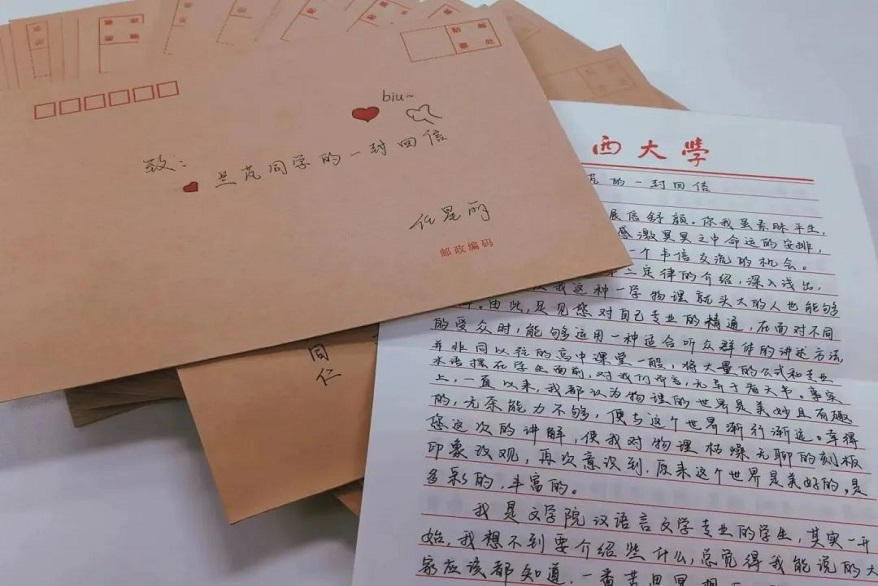 biu~
致：
兰芃同学的一封回信
任星丽
邮政编码
同仁
西大學
芃的一封回信
展信舒颜。你我虽素昧平生，
感激冥冥之中命运的安排，
一个书信交流的机会。
二定律的介绍，深入浅出，
我这种一学物理就头大的人也能够
由此，足见您对自己专业的精通，在面对不同
的受众时，能够运用一种适合听众群体的讲述方法，
并非同以往的高中课堂一般，将大量的公式和专业
术语摆在学生面前，对我们而言，无异于看天书。事实
上，一直以来，我都认为物理的世界是美妙且有趣
的，无奈能力不够，便与这个世界渐行渐远。幸得
您这次的讲解，使我对物理枯燥无聊的刻板
印象改观，再次意识到，原来这个世界是美好的，是
多彩的，丰富的。
我是文学院汉语言文学专业的学生，其实一开
始，我想不到要介绍些什么，总觉得我能说的大
家应该都知道，一番苦思冥想